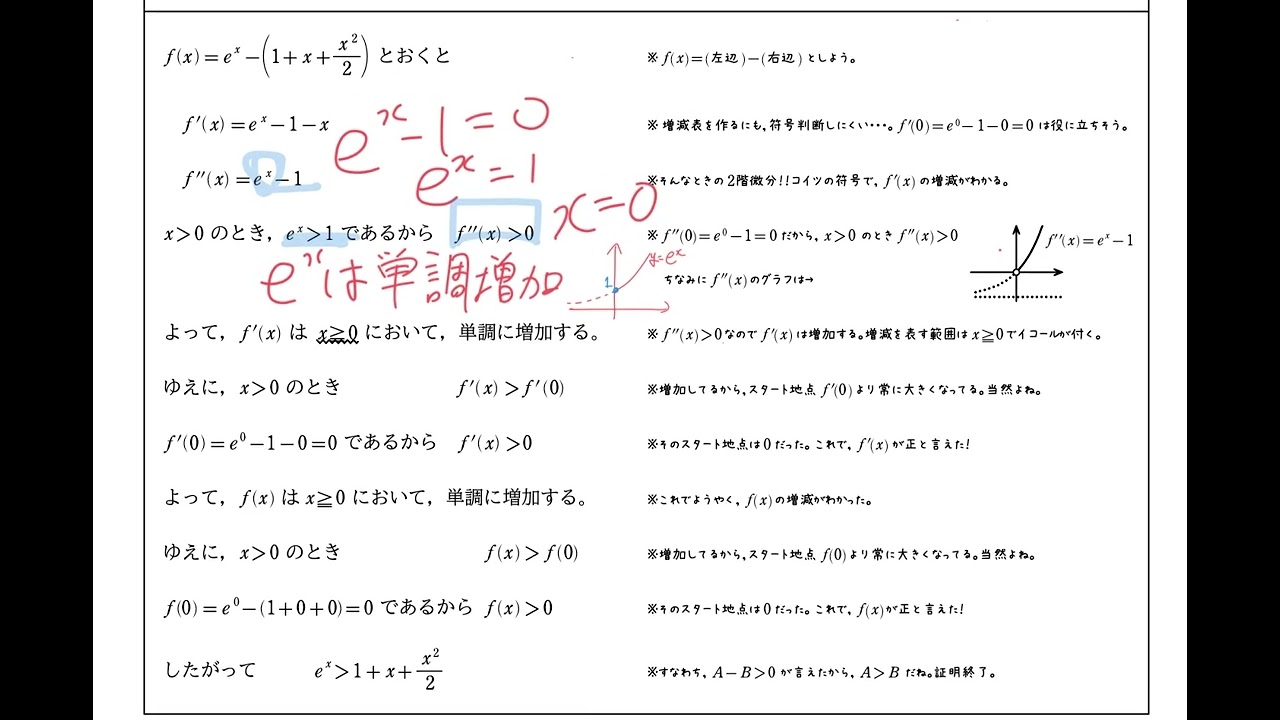 f(x)=e^x-(1+x+x^2/2) とおくと ※ f(x)=(左辺)-(右辺) としよう。
f'(x)=e^x-1-x e^x-1=0 ※増減表を作るにも,符号判断しにくい・・・。f'(0)=e^0-1-0=0 は役に立ちそう。
f''(x)=e^x-1 e^x=1 ※そんなときの2階微分!!コイツの符号で, f'(x) の増減がわかる。
x>0 のとき, e^x>1 であるから f''(x)>0 x=0 ※ f''(0)=e^0-1=0 だから, x>0 のとき f''(x)>0 f''(x)=e^x-1
e^xは単調増加 1 y=e^x ちなみに f''(x)のグラフは→
よって, f'(x) は x≧0 において, 単調に増加する。 ※ f''(x)>0なので f'(x) は増加する。増減を表す範囲は x≧0でイコールが付く。
ゆえに, x>0 のとき f'(x)>f'(0) ※増加してるから,スタート地点 f'(0)より常に大きくなってる。当然よね。
f'(0)=e^0-1-0=0 であるから f'(x)>0 ※そのスタート地点は0だった。これで, f'(x)が正と言えた!
よって, f(x) は x≧0 において, 単調に増加する。 ※これでようやく, f(x)の増減がわかった。
ゆえに, x>0 のとき f(x)>f(0) ※増加してるから,スタート地点 f(0)より常に大きくなってる。当然よね。
f(0)=e^0-(1+0+0)=0 であるから f(x)>0 ※そのスタート地点は0だった。これで, f(x)が正と言えた!
したがって e^x>1+x+x^2/2 ※すなわち, A-B>0 が言えたから, A>B だね。証明終了。